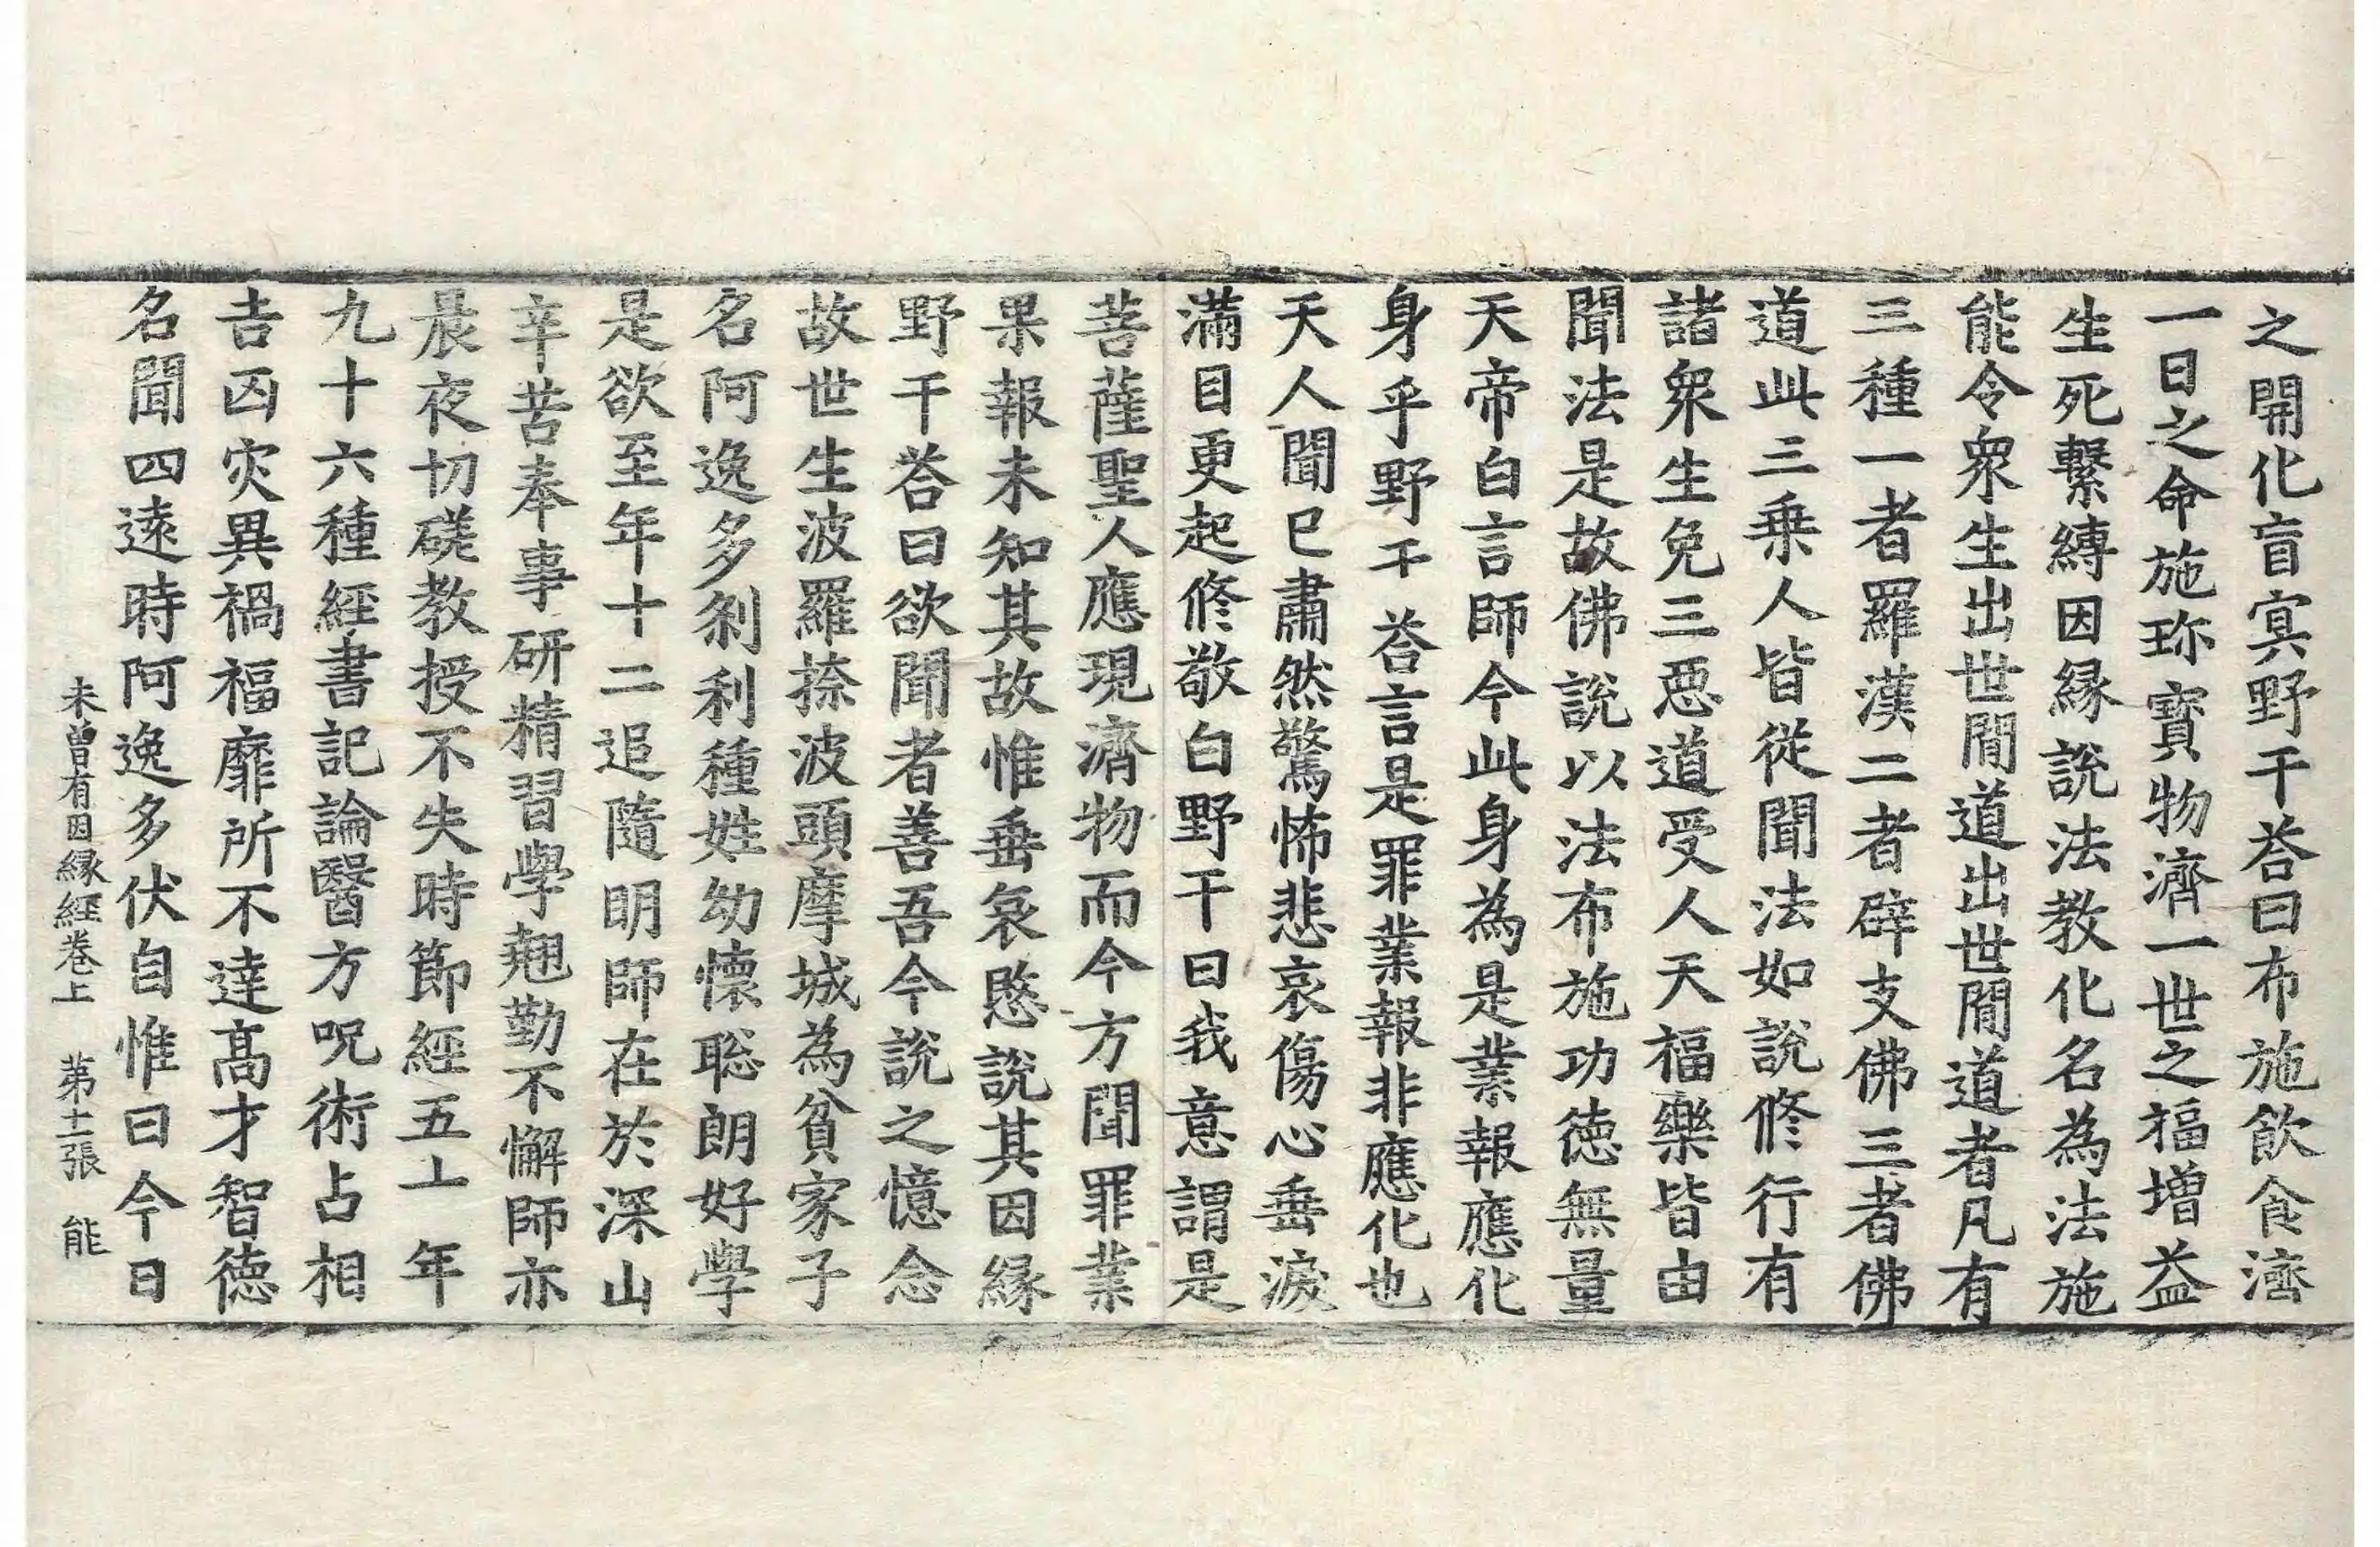 之開化盲㝠野干荅曰布施飲食濟
一日之命施珎寶物濟一世之福增益
生死繫縛因縁說法教化名為法施
能令衆生出世閒道出世閒道者凡有
三種一者羅漢二者辟支佛三者佛
道此三乗人皆從聞法如說修行有
諸衆生免三惡道受人天福樂皆由
聞法是故佛說以法布施功德無量
天帝白言師今此身為是業報應化
身乎野干荅言是罪業報非應化也
天人聞已肅然驚怖悲哀傷心垂淚
滿目更起修敬白野干曰我意謂是
菩薩聖人應現濟物而今方聞罪業
果報未知其故惟垂哀愍說其因縁
野干荅曰欲聞者善吾今說之憶念
故世生波羅捺波頭摩城為貧家子
名阿逸多刹利種姓幼懷聡朗好學
是欲至年十二追隨明師在於深山
辛苦奉事研精習學翹勤不懈師亦
晨夜切磋教授不失時節經五十年
九十六種經書記論醫方呪術占相
吉凶灾異禍福靡所不達髙才智德
名聞四遠時阿逸多伏自惟曰今日
未曾有因縁經卷上 苐十一張 能